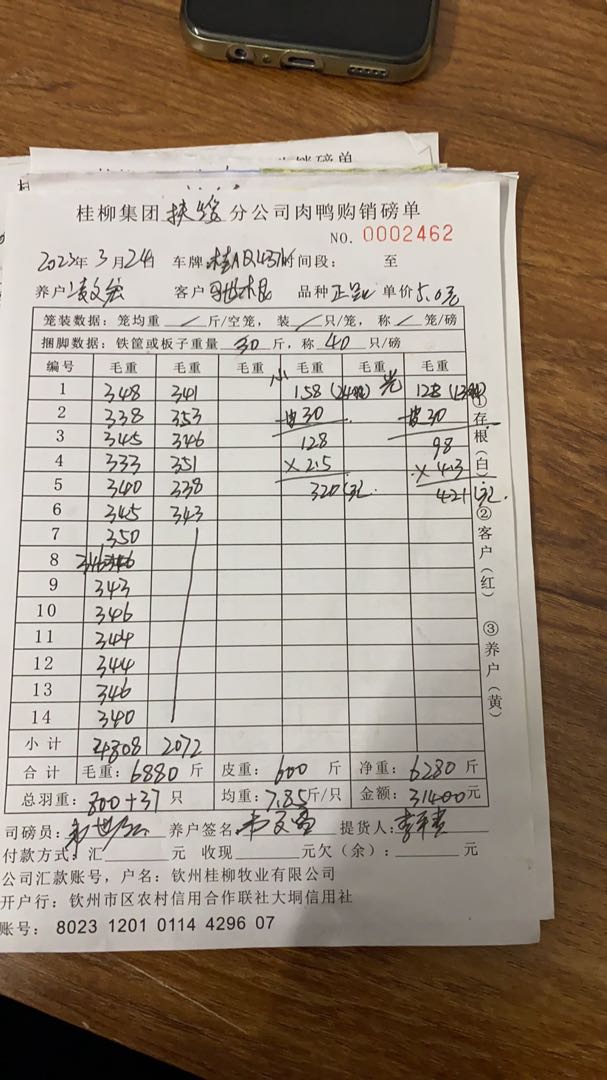 桂柳集团扶绥分公司肉鸭购销磅单
NO. 0002462
2023年3月24日 车牌: 时间段: 至
养户 客户 品种 单价5.0元
笼装数据: 笼均重 / 斤/空笼, 装 / 只/笼, 称 / 笼/磅
捆脚数据: 铁筐或板子重量 30 斤, 称 40 只/磅
编号 毛重 毛重 毛重 毛重 毛重 毛重
1 348 341 小 158 光 128
2 338 353 皮30 皮30
3 345 346 128 98
4 333 351 ×2.5 ×4.3
5 340 338 320元 421元
6 345 343
7 350
8 346
9 343
10 346
11 344
12 344
13 346
14 340
小计 4808 2072
合计 毛重: 6880 斤 皮重: 600 斤 净重: 6280 斤
总羽重: 800+37 只 均重: 7.85 斤/只 金额: 31400 元
司磅员: 养户签名 提货人:
付款方式: 汇 元 收现 元欠(余): 元
公司汇款账号, 户名: 钦州桂柳牧业有限公司
开户行: 钦州市区农村信用合作联社大垌信用社
账号: 8023 1201 0114 4296 07
①存根(白)②客户(红) ③养户(黄)